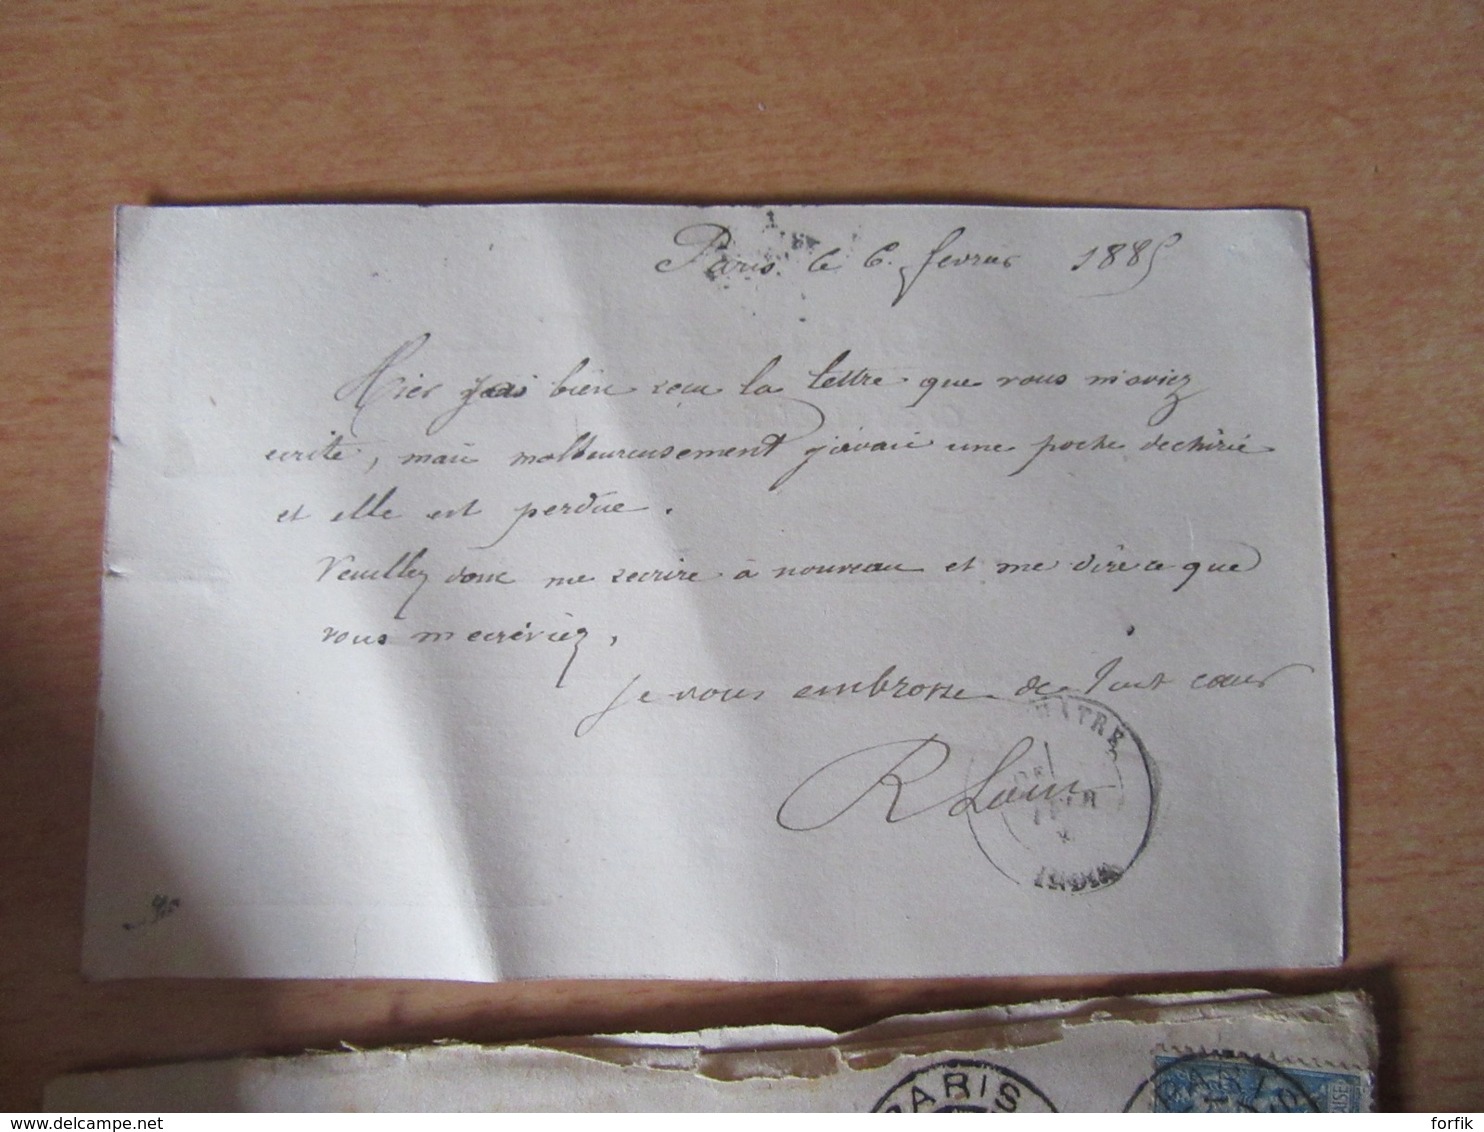 Paris le 6. fevrier 1885
Hier j'ai bien recu la lettre que vous m'aviez
ecrite, mais malheureusement j'avais une poche dechirée
et elle est perdue.
Veuillez donc me reecrire à nouveau et me dire ce que
vous m'ecriviez,
je vous embrasse de tout cœur
R
ATRE
INDRE
PARIS
PARIS
forfik
www.delcampe.net